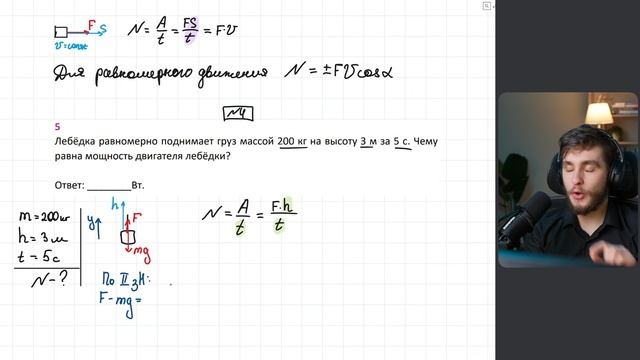 F S
υ=const
N = A/t = FS/t = F·υ
Для равномерного движения N = ±Fυcosα
№4
5
Лебёдка равномерно поднимает груз массой 200 кг на высоту 3 м за 5 с. Чему
равна мощность двигателя лебёдки?
Ответ: ________Вт.
m=200кг
h=3м
t=5с
N-?
y
h
F
mg
По II з.Н:
F-mg=
N = A/t = F·h/t